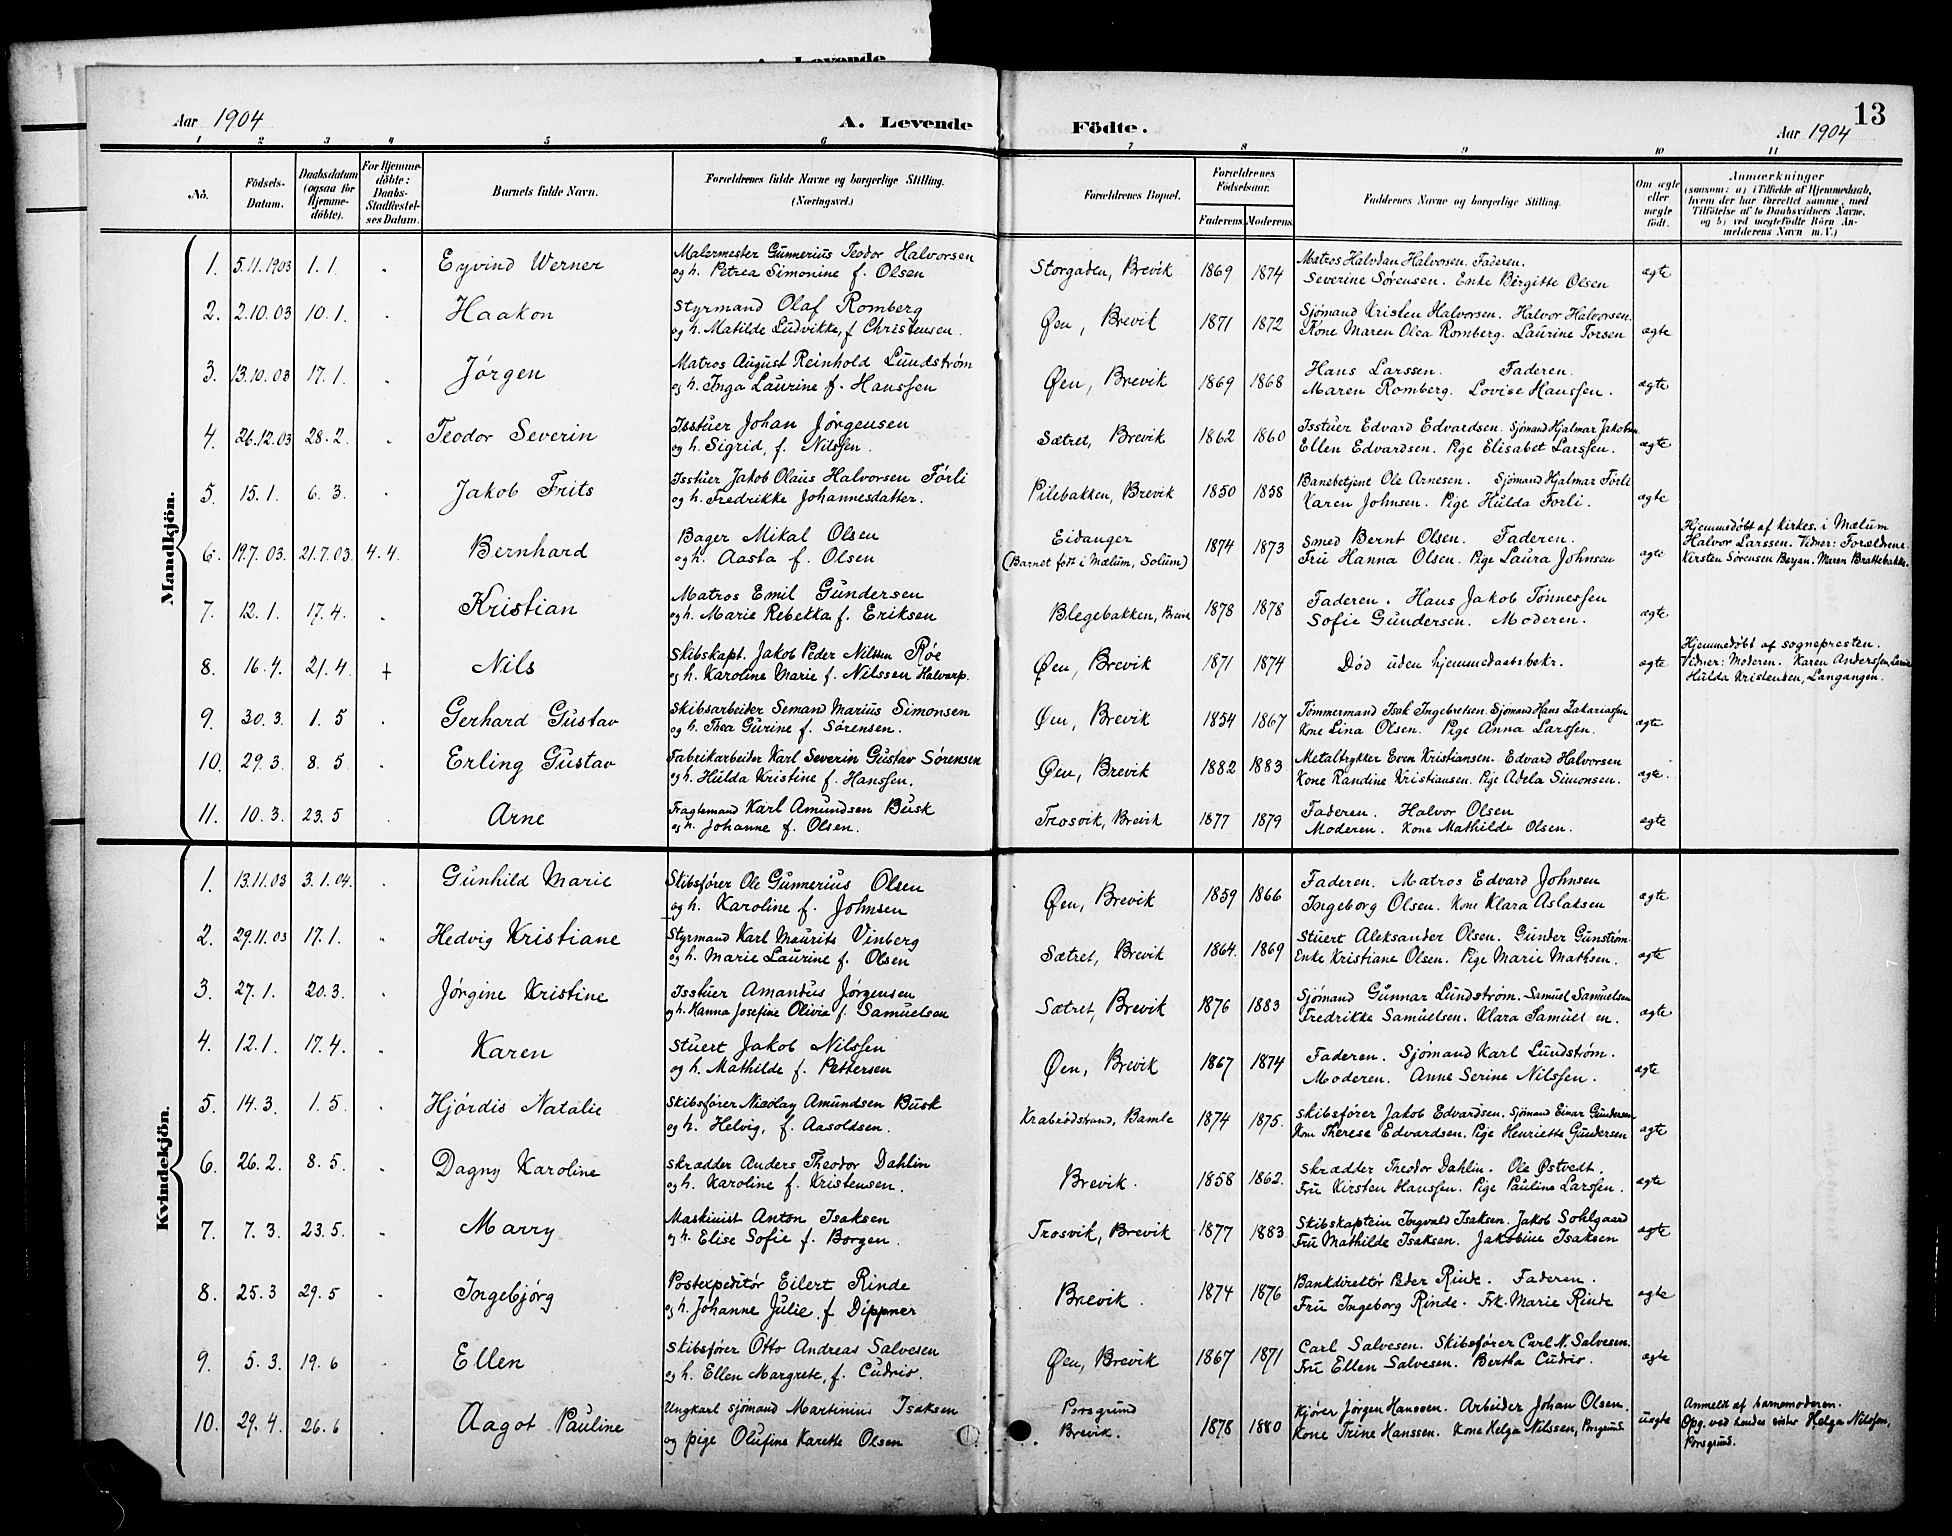 A. Levende
Aar 1904
A. Levende Födte.
13
Aar 1904
1 2 3 4 5 6 7 8 9 10 11
No. Födsels-Datum. Daabsdatum (ogsaa för Hjemme-döbte). For Hjemme-döbte: Daabs-Stadfæstel-ses Datum. Barnets fulde Navn. Forældrenes fulde Navne og borgerlige Stilling. (Næringsvei.) Forældrenes Bopæl. Forældrenes Födselsaar. Faderens. Moderens. Faddernes Navne og borgerlige Stilling. Om ægte eller uægte födt. Anmærkninger (saasom: a) i Tilfælde af Hjemmedaab, hvem der har forrettet samme, med Tilföielse af to Daabsvidners Navne, og b) ved uægtefödte Börn An-melderens Navn m. V.)
Mandkjön.
1. 5.11.1903 1.1. Eyvind Werner Malermester Gunnerius Teodor Halvorsen Storgaden, Brevik 1869 1874 Matros Halvdan Halvorsen. Faderen. ægte
og h. Petrea Simonine f. Olsen Severine Sørensen. Enke Birgitte Olsen
2. 2.10.03 10.1. Haakon Styrmand Olaf Romberg Øen, Brevik 1871 1872 Sjømand Kristen Halvorsen. Halvor Halvorsen. ægte
og h. Matilde Ludvikke, f. Christensen. Kone Maren Olea Romberg. Laurine Torsen
3. 13.10.03 17.1. Jørgen Matros August Reinhold Lundstrøm Øen, Brevik 1869 1868 Hans Larssen. Faderen. ægte
og h. Inga Laurine f. Hanssen Maren Romberg. Lovise Hanssen.
4. 26.12.03 28.2. Teodor Severin Isstuer Johan Jørgensen Sætret, Brevik 1862 1860 Isstuer Edvard Edvardsen. Sjømand Hjalmar Jakobsen ægte
og h. Sigrid, f. Nilssen. Ellen Edvardsen. Pige Elisabet Larssen.
5. 15.1. 6.3. Jakob Frits Isstuer Jakob Olaus Halvorsen Førli Pilebakken, Brevik 1850 1858 Banebetjent Ole Arnesen. Sjømand Hjalmar Førli ægte
og h. Fredrikke Johannesdatter. Karen Johnsen. Pige Hulda Førli.
6. 19.7.03. 21.7.03. 4.4. Bernhard Bager Mikal Olsen Eidanger 1874 1873 Smed Bernt Olsen. Faderen. ægte Hjemmedøbt af kirkes. i Mælum
og h. Aasta f. Olsen (Barnet født i Mælum, Solum) Fru Hanna Olsen. Pige Laura Johnsen Halvor Larssen. Vidner: Forældrene.
Kirsten Sørensen Maren Brattebakke.
7. 12.1. 17.4. Kristian Matros Emil Gundersen Blegebakken, Brevik 1878 1878 Faderen. Hans Jakob Tønnessen ægte
og h. Marie Rebekka f. Eriksen Sofie Gundersen. Moderen.
8. 16.4. 21.4 + Nils Skibskapt. Jakob Peder Nilssen Røe Øen, Brevik 1871 1874 Død uden hjemmedaabsbekr. ægte Hjemmedøbt af sognepresten.
og h. Karoline Marie f. Nilssen Halvarp. Vidner: Moderen. Karen Anderssen,
Hulda Kristensen, Langangen.
9. 30.3. 1.5 Gerhard Gustav Skibsarbeider Semand Marius Simonsen Øen, Brevik 1854 1867 Tømmermand Isak Ingebretsen. Sjømand Hans Zakariassen ægte
og h. Thea Gurine f. Sørensen. Kone Lina Olsen. Pige Anna Larssen.
10. 29.3. 8.5 Erling Gustav Fabrikarbeider Karl Severin Gustav Sørensen Øen, Brevik 1882 1883 Metaltrykker Even Kristiansen. Edvard Halvorsen ægte.
og h. Hulda Kristine f. Hanssen. Kone Randine Kristiansen. Pige Adela Simonsen.
11. 10.3. 23.5 Arne Fragtemand Karl Amundsen Busk Trosvik, Brevik 1877 1879 Faderen. Halvor Olsen ægte
og h. Johanne f. Olsen. Moderen. Kone Mathilde Olsen.
Kvindekjön.
1. 13.11.03 3.1.04. Gunhild Marie Skibsfører Ole Gunnerius Olsen Øen, Brevik 1859 1866 Faderen. Matros Edvard Johnsen ægte
og h. Karoline f. Johnsen Ingeborg Olsen. Kone Klara Aslaksen
2. 29.11.03 17.1. Hedvig Kristiane Styrmand Karl Maurits Vinberg Sætret, Brevik 1864. 1869 Stuert Aleksander Olsen. Gunder Gunstrøm. ægte
og h. Marie Laurine f. Olsen Enke Kristiane Olsen. Pige Marie Mathsen.
3. 27.1. 20.3. Jørgine Kristine Isstuer Amandus Jørgensen Sætret, Brevik 1876 1883 Sjømand Gunnar Lundstrøm. Samuel Samuelsen ægte
og h. Hanna Josefine Olivia f. Samuelsen Fredrikke Samuelsen. Klara Samuelsen.
4. 12.1. 17.4. Karen Stuert Jakob Nilssen Øen, Brevik 1867 1874 Faderen. Sjømand Karl Lundstrøm. ægte
og h. Mathilde f. Pettersen Moderen. Anne Serine Nilssen.
5. 14.3. 1.5. Hjørdis Natalie Skibsfører Nicolay Amundsen Busk Krabrødstrand, Bamle 1874 1875. Skibsfører Jakob Edvardsen. Sjømand Einar Gundersen ægte
og h. Helvig, f. Aasoldsen. Kone Therese Edvardsen. Pige Henriette Gundersen
6. 26.2. 8.5. Dagny Karoline Skrædder Anders Theodor Dahlin Brevik. 1858 1862. Skrædder Theodor Dahlin. Ole Østvedt. ægte
og h. Karoline f. Kristensen. Fru Kirsten Hanssen. Pige Pauline Larssen.
7. 7.3. 23.5. Marry Maskinist Anton Isaksen Trosvik, Brevik 1877 1883 Skibskaptein Ingvald Isaksen. Jakob Sohlgaard ægte
og h. Elise Sofie f. Borgen. Fru Mathilde Isaksen. Jakobine Isaksen
8. 25.3 29.5 Ingebjørg Postexpeditør Eilert Rinde Brevik. 1874 1876 Bankdirektør Peder Rinde. Faderen. ægte
og h. Johanne Julie f. Dippner Fru Ingeborg Rinde. Frk. Marie Rinde
9. 5.3. 19.6 Ellen Skibsfører Otto Andreas Salvesen Øen, Brevik 1867 1871 Carl Salvesen. Skibsfører Carl N. Salvesen. ægte
og h. Ellen Margrete, f. Cudrio. Fru Ellen Salvesen. Bertha Cudrio.
10. 29.4. 26.6 Aagot Pauline Ungkarl sjømand Martinius Isaksen Porsgrund 1878 1880 Kjører Jørgen Hanssen. Arbeider Johan Olsen. uægte Anmeldt af barnemoderen.
og pige Olufine Karette Olsen Brevik. Kone Trine Hanssen. Kone Helga Nilssen, Porsgrund Opg. ved hendes søster Helga Nilssen,
Porsgrund.